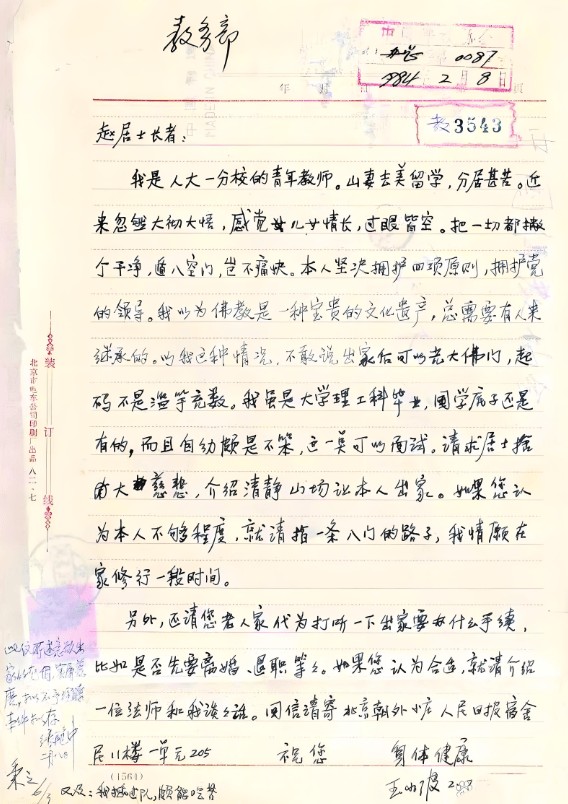 教务部
办 0087
1984 2 8
年 月
教3543
赵居士长者：
我是人大一分校的青年教师。山妻去美留学，分居甚苦。近
来忽然大彻大悟，感觉儿女情长，过眼皆空。把一切都撇
个干净，遁入空门，岂不痛快。本人坚决拥护四项原则，拥护党
的领导。我以为佛教是一种宝贵的文化遗产，总需要有人来
继承的。以我这种情况，不敢说出家后可以光大佛门，起
码不是滥竽充数。我虽是大学理工科毕业，国学底子还是
有的，而且自幼颇是不笨，这一点可以面试。请求居士捨
大慈悲，介绍清静山场让本人出家。如果您认
为本人不够程度，就请指一条入门的路子，我情愿在
家修行一段时间。
另外，还请您老人家代为打听一下出家要办什么手续，
比如是否先要离婚、退职等等。如果您认为合适，就请介绍
一位法师和我谈谈。回信请寄北京朝外小庄人民日报宿舍
尼11楼一单元205 祝您 身体健康
王小波
(1564)
又及：我插过队，颇能吃苦
装订线
北京市电车公司印刷厂出品 八二·七